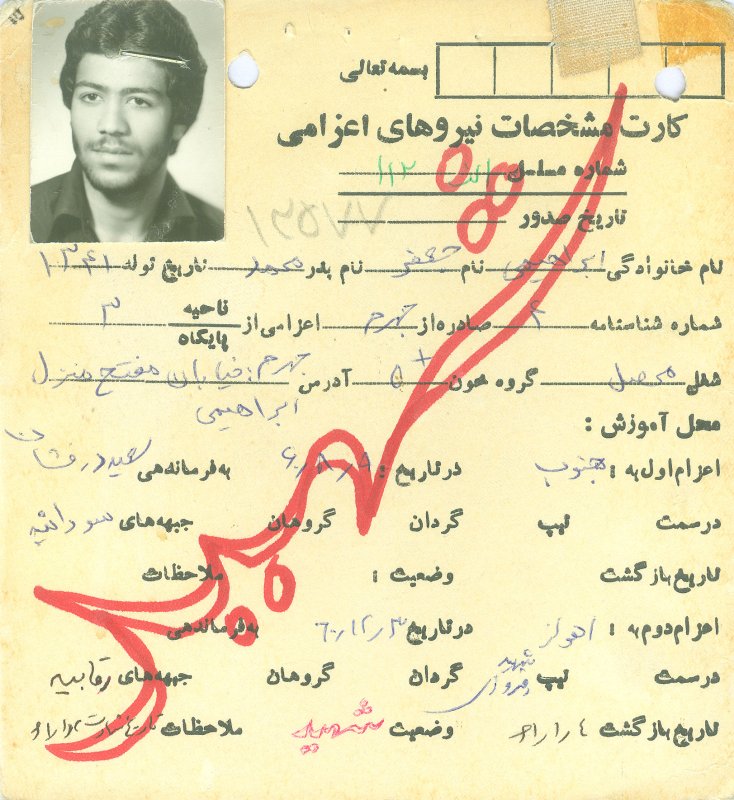 بسمه تعالی
کارت مشخصات نیروهای اعزامی
شماره مسلسل ۱۱۲
تاریخ صدور
۱۳۵۷۷
نام خانوادگی ابراهیمی نام جعفر نام پدر محمد تاریخ تولد ۱۳۴۱
شماره شناسنامه ۴ صادره از جهرم اعزامی از ناحیه پایگاه ۳
شغل محصل گروه خون O+ آدرس جهرم: خیابان مفتح منزل
ابراهیمی
محل آموزش :
اعزام اول به : جنوب در تاریخ : ۶۰/۸/۹ به فرماندهی سعید درفشان
در سمت تیپ گردان گروهان جبهه‌های
تاریخ بازگشت وضعیت : ملاحظات
اعزام دوم به : اهواز در تاریخ ۶۰/۱۲/۳ به فرماندهی
در سمت تیپ گردان گروهان جبهه‌های رقابیه
تاریخ بازگشت وضعیت شهید ملاحظات
شهید